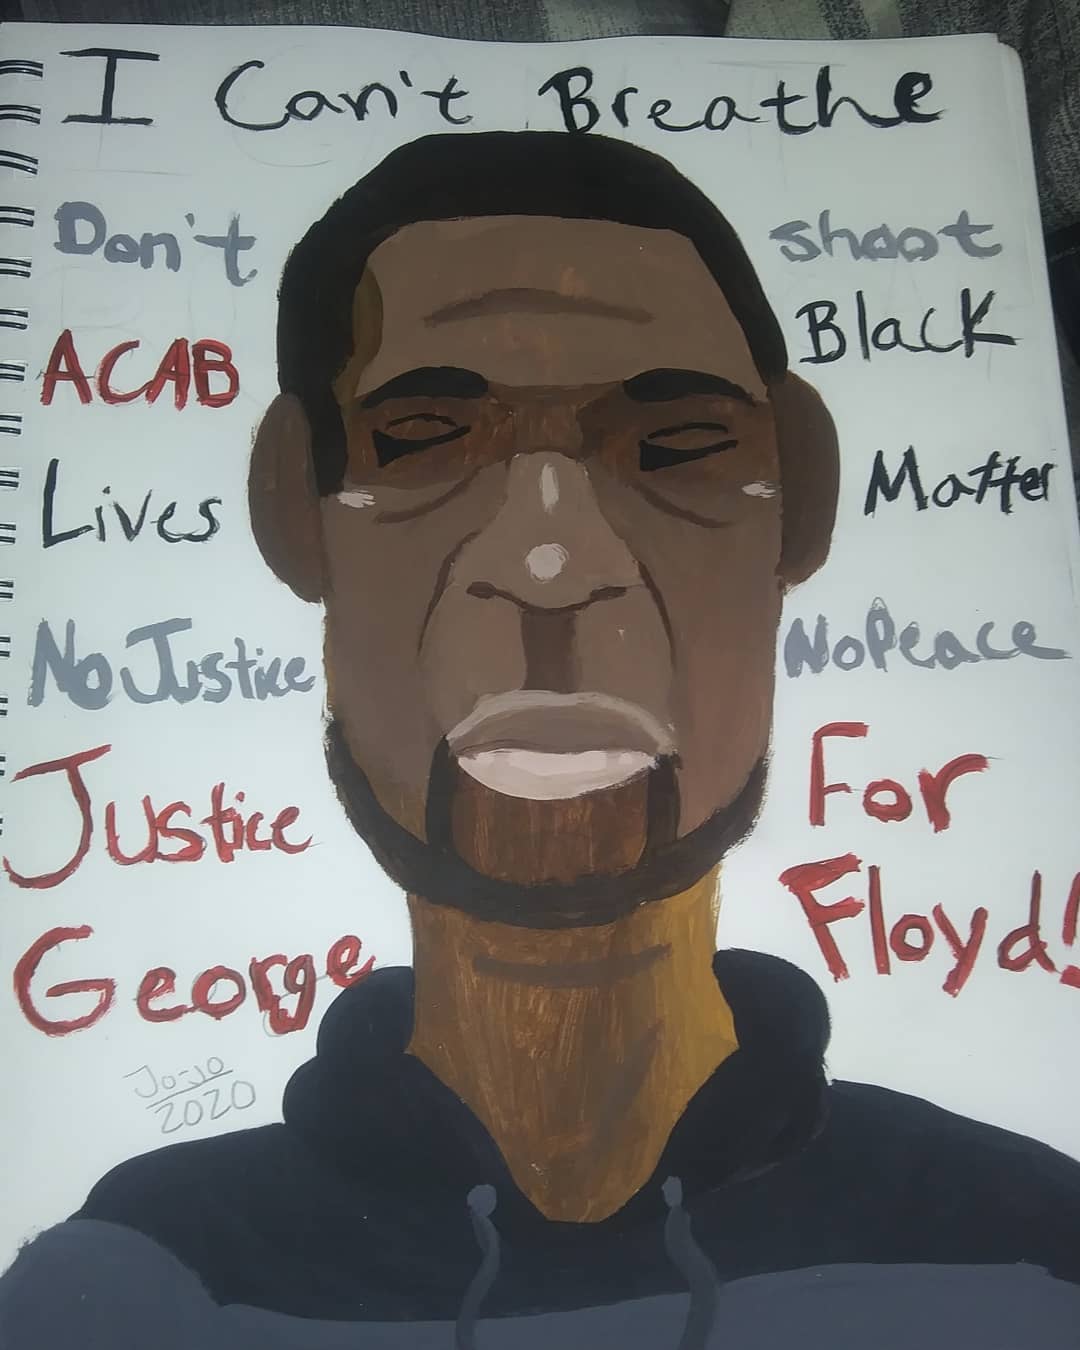 I Can't Breathe
Don't shoot
ACAB Black
Lives Matter
No Justice No Peace
Justice For
George Floyd!
Jo-Jo
2020